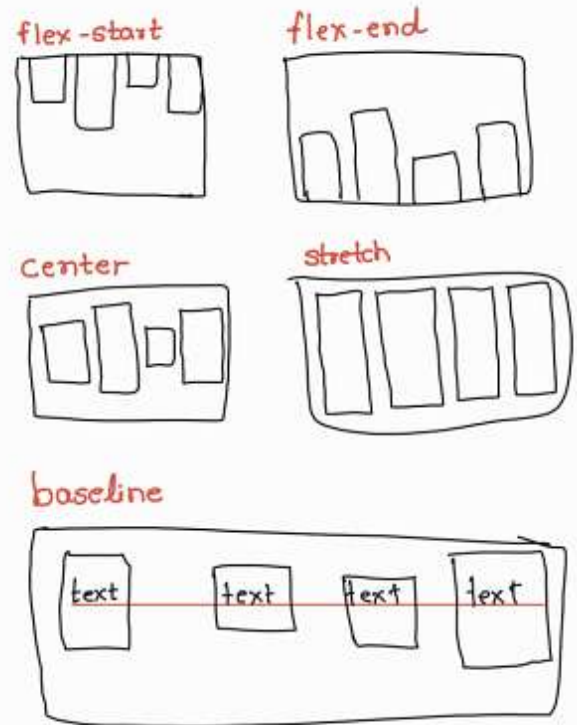 flex-start
flex-end
center
stretch
baseline
text text text text